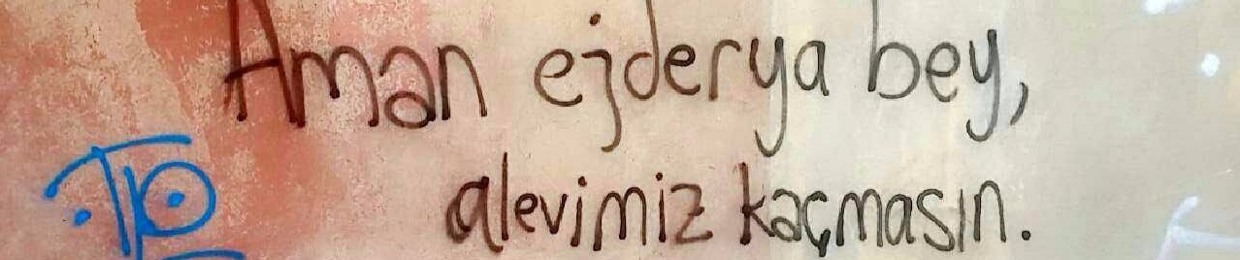 Aman ejderya bey,
alevimiz kaçmasın.